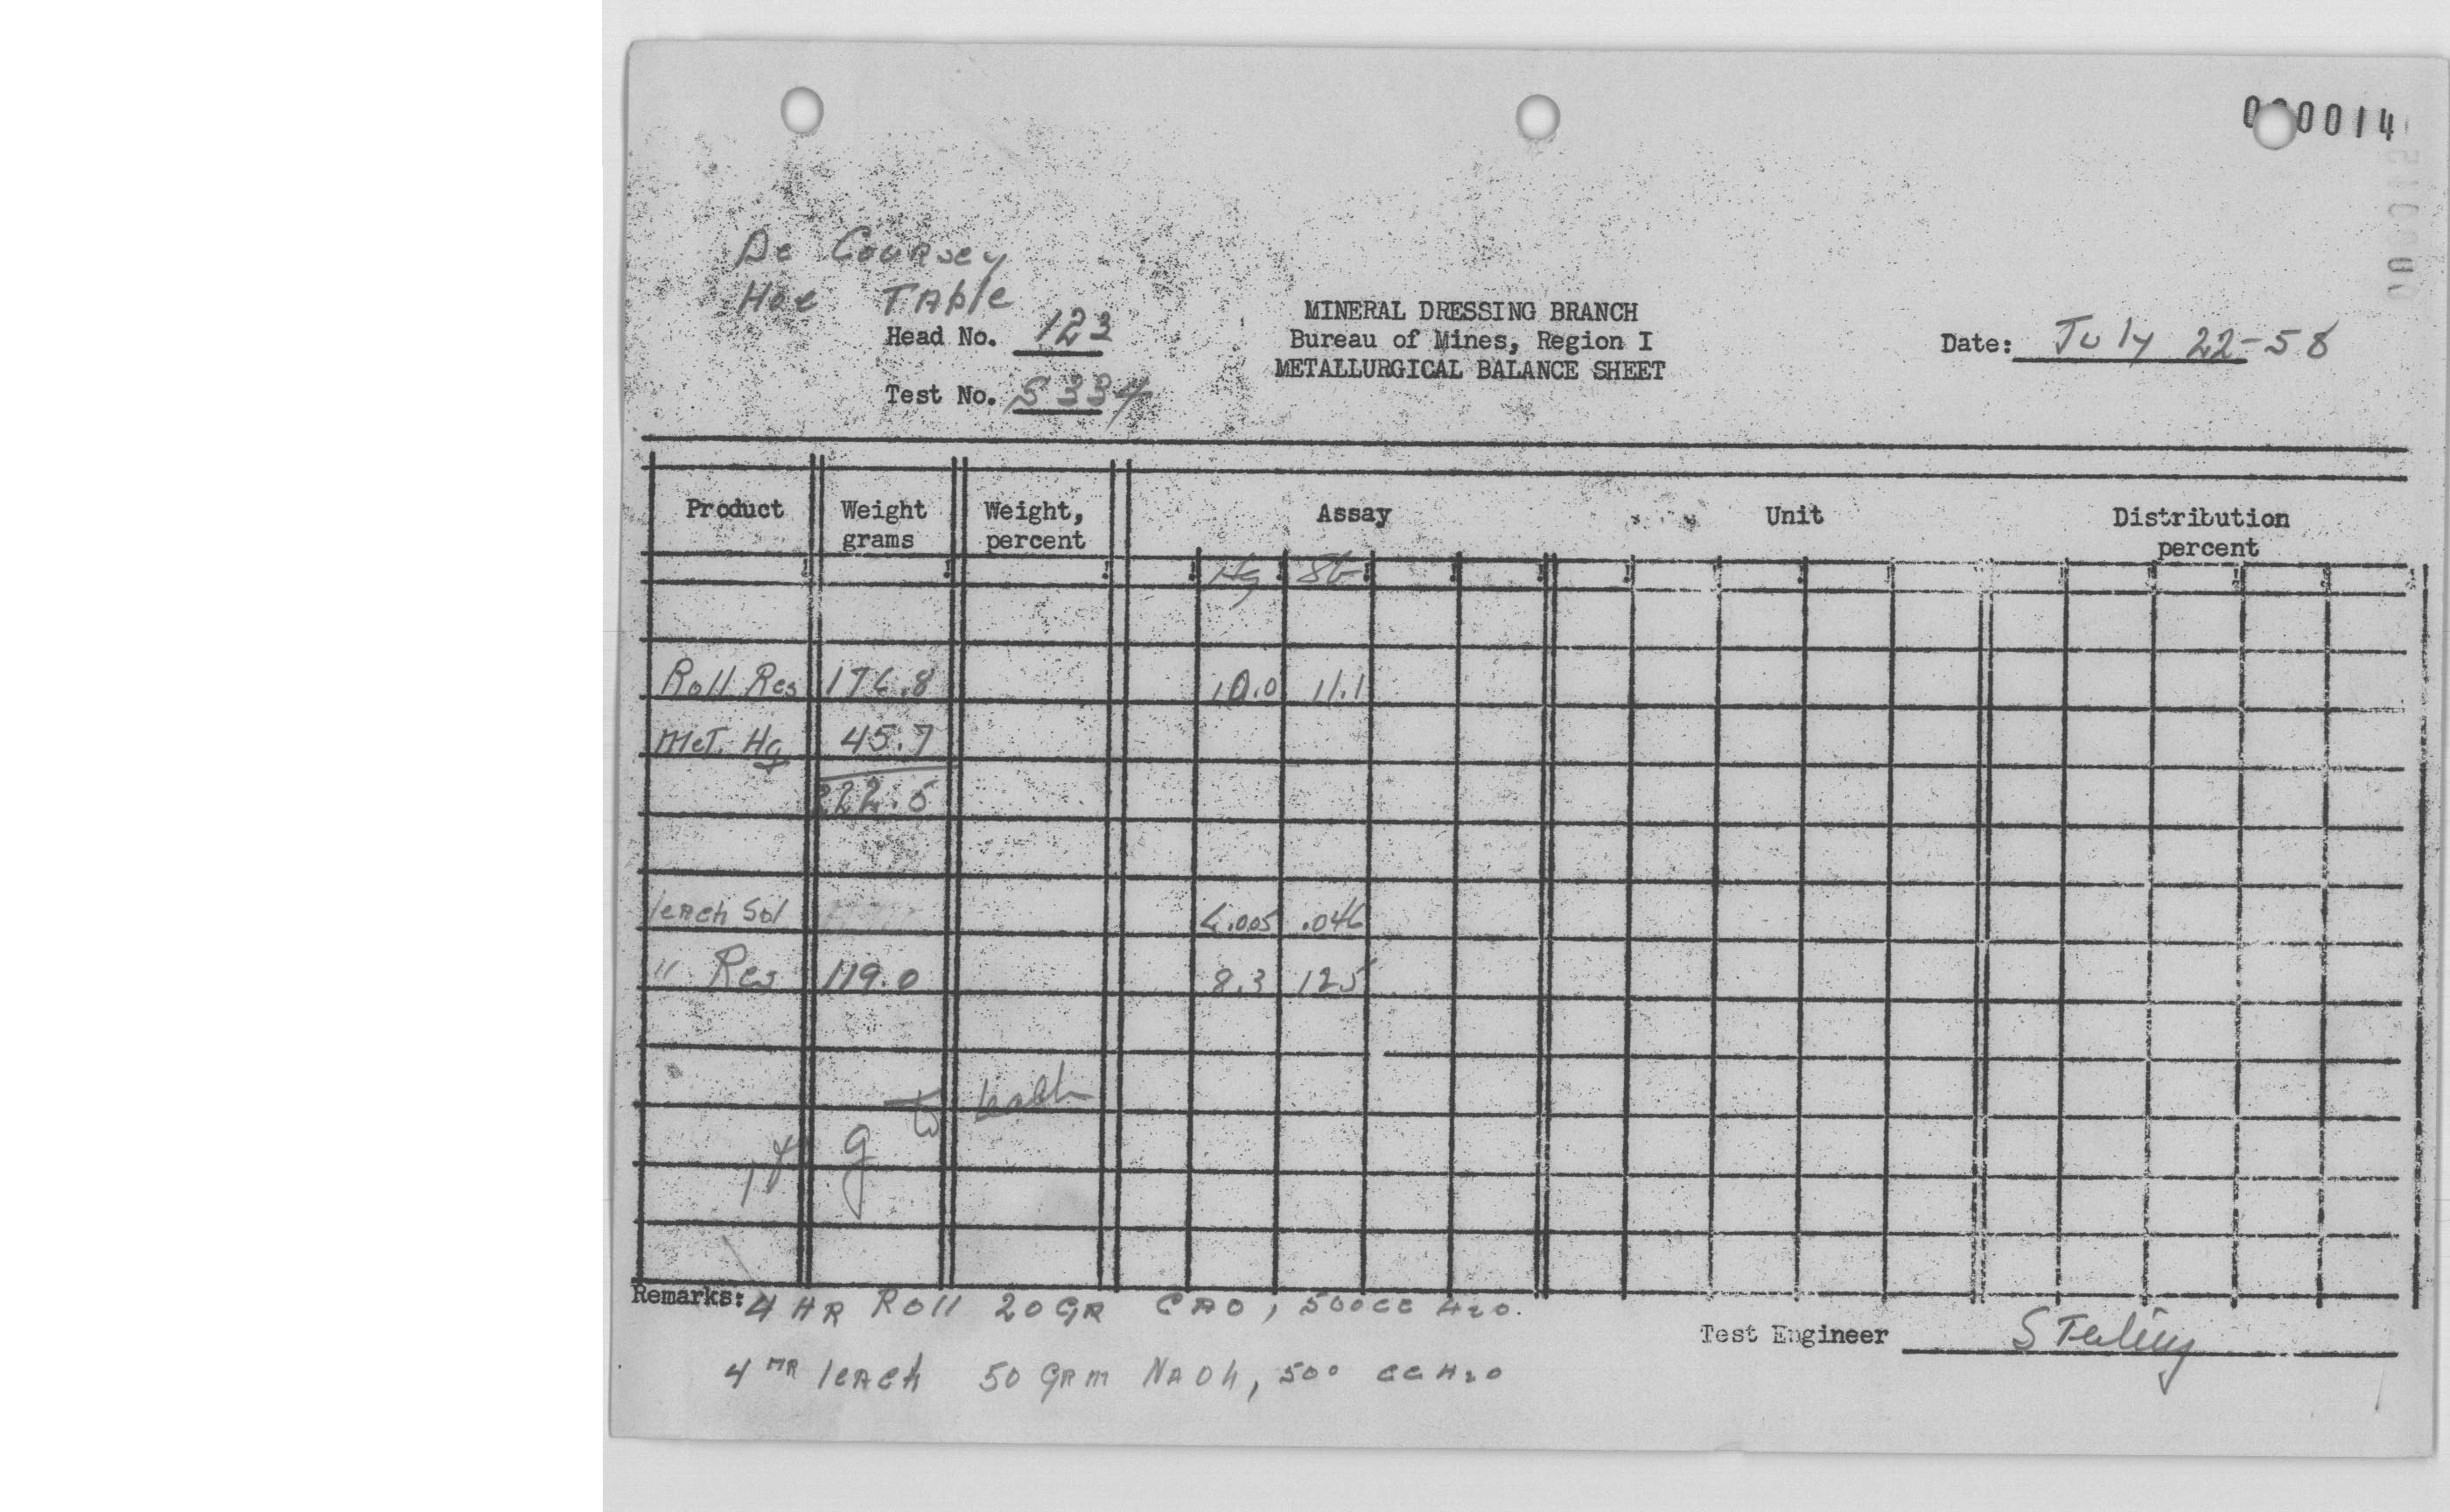 000014
De Coursey
Hoe TAble
Head No. 123
Test No. S 334
MINERAL DRESSING BRANCH
Bureau of Mines, Region I
METALLURGICAL BALANCE SHEET
Date: July 22-58
Product Weight grams Weight, percent Assay Unit Distribution percent
Hg Sb
Roll Res 176.8 10.0 11.1
MeT. Hg 45.7
222.5
leach Sol <.005 .046
" Res 119.0 8.3 125
g to leach
Remarks: 4 HR Roll 20 GR CAO, 500CC H20.
Test Engineer
4 HR leach 50 GRM NAOh, 500 CC H20